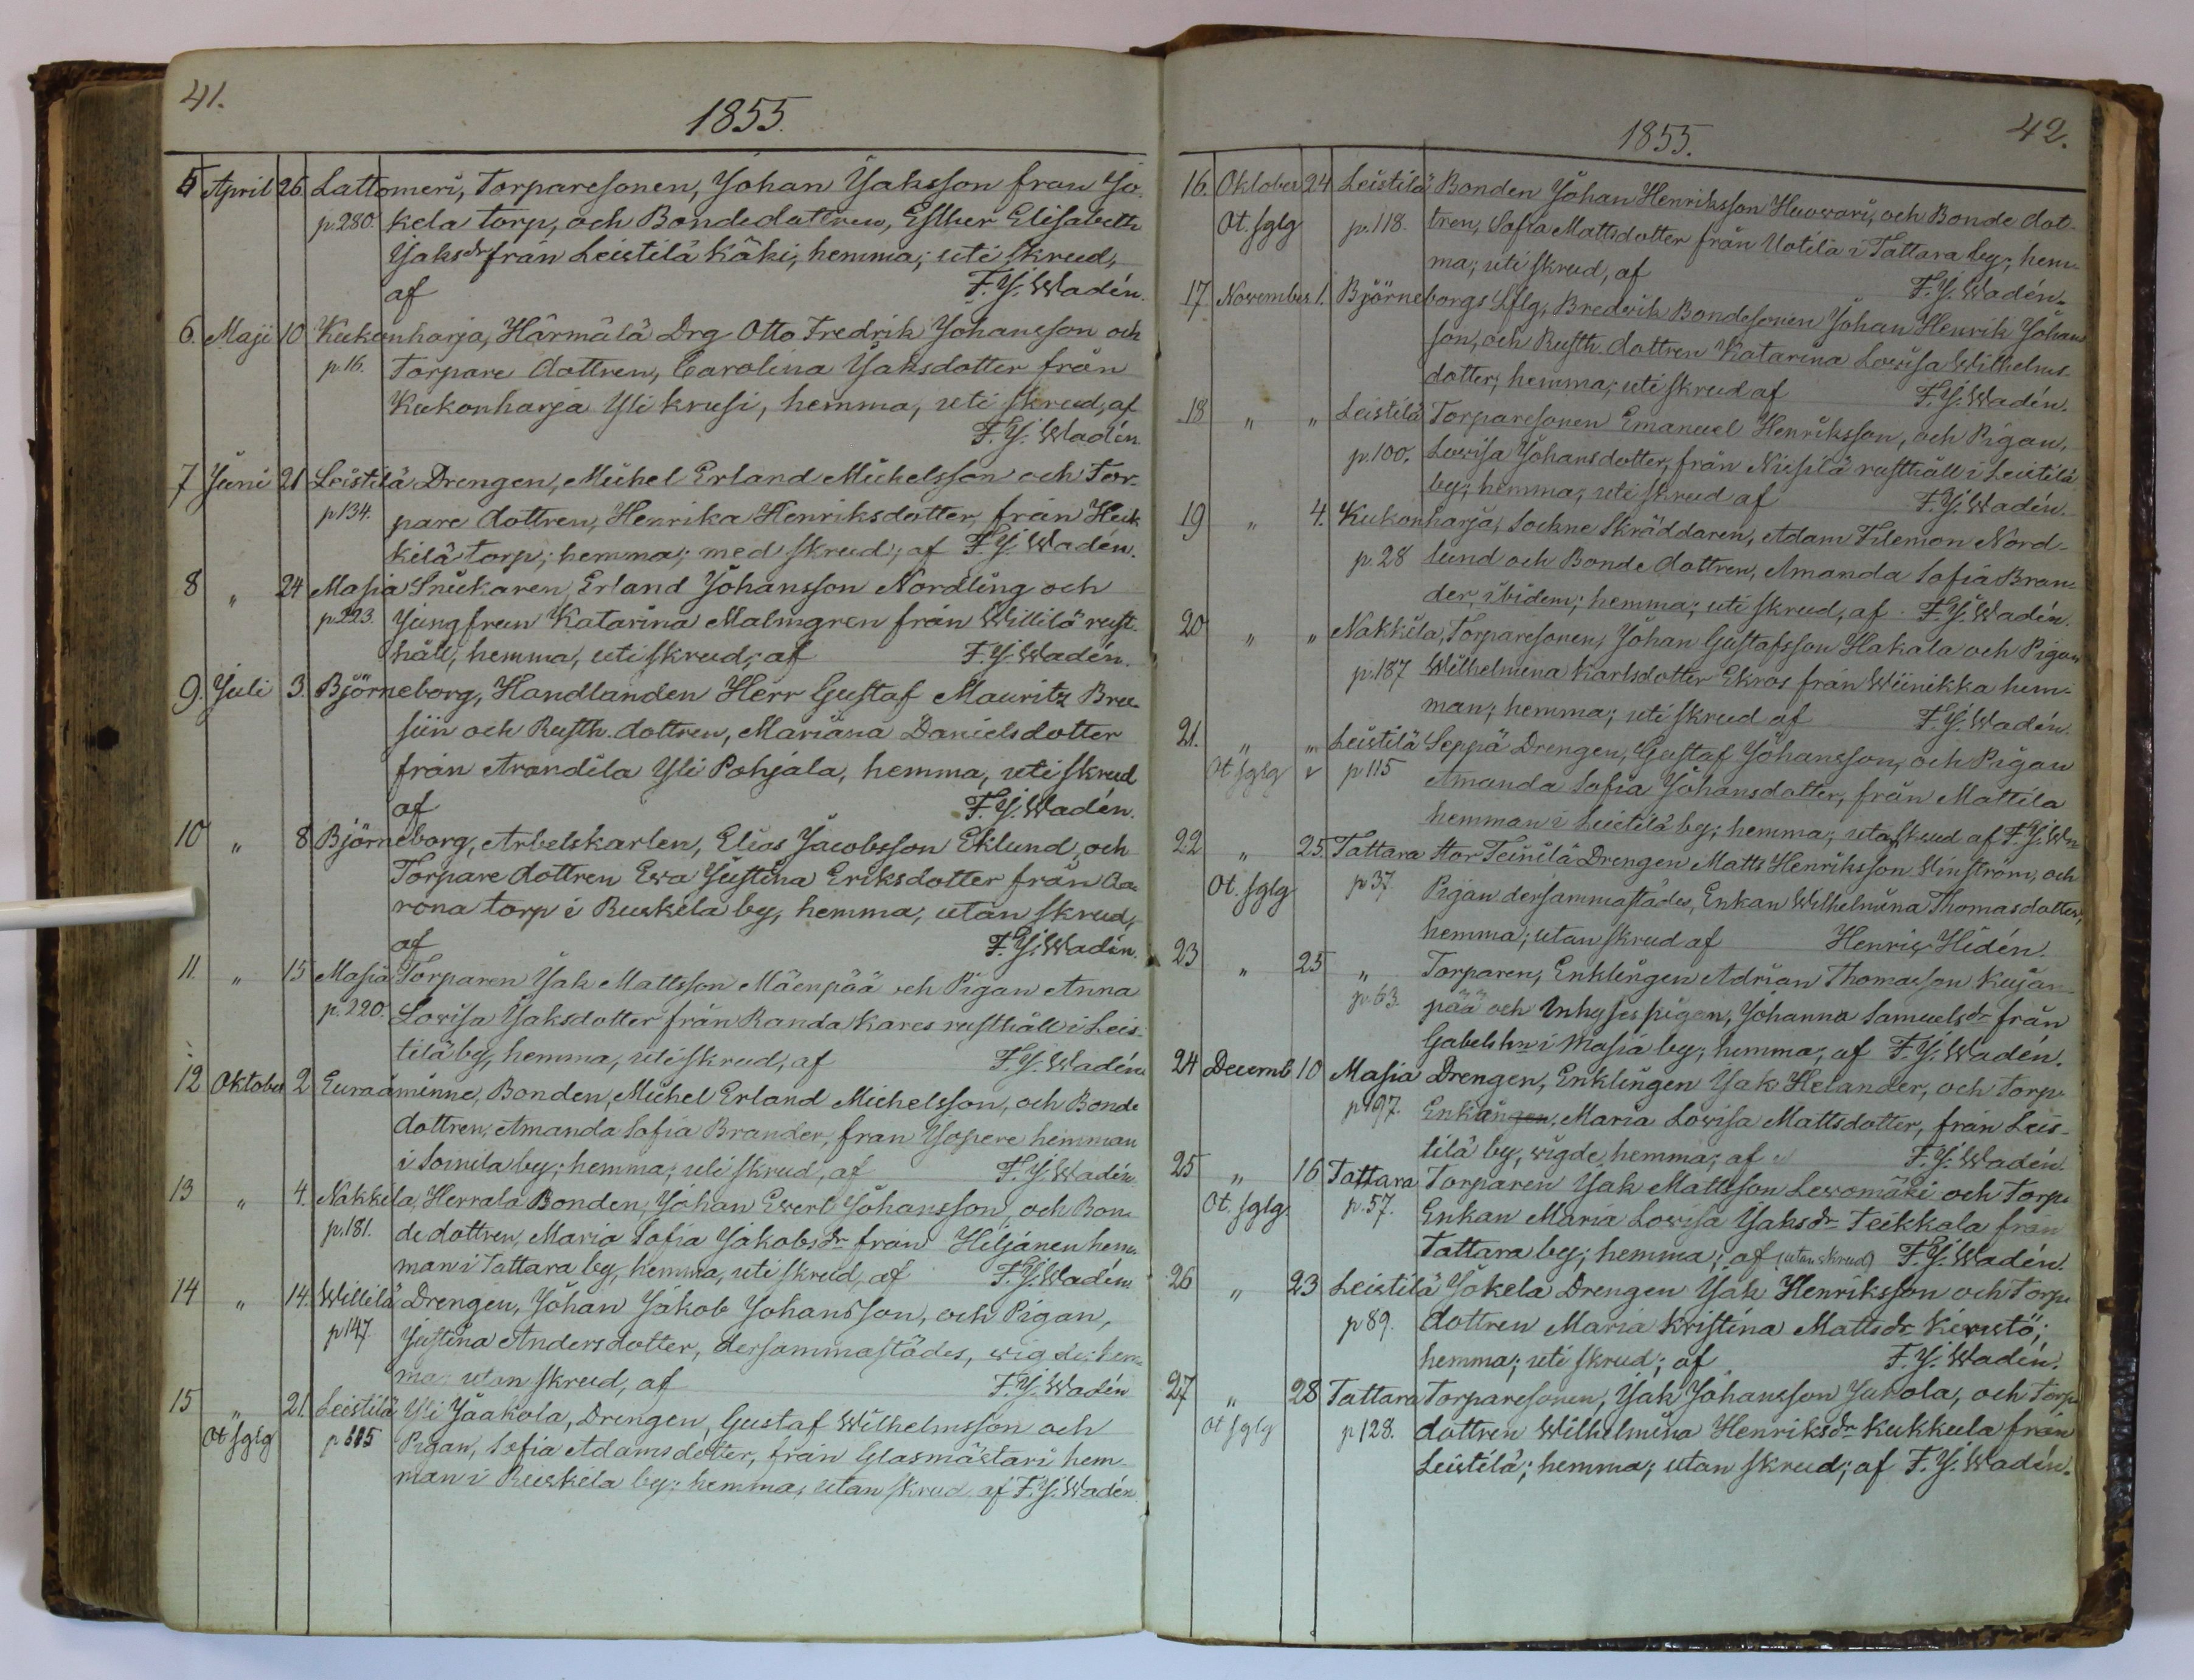 41.
1855.
5 April 26. Lattomeri, Torparesonen, Johan Jaksson från Jo-
p.280. kela torp, och Bondedottren, Esther Elisabeth
Jaksdr från Leistilä Käki, hemma; uti skrud,
af F. J. Wadén.
6. Maji 10 Kukonharja, Härmälä Drg Otto Fredrik Johansson och
p.16. Torpare dottren, Carolina Jaksdotter från
Kukonharja Yli krusi, hemma, uti skrud, af
F. J. Wadén.
7 Juni 21 Leistilä Drengen, Michel Erland Michelsson och Tor-
p134. pare dottren, Henrika Henriksdotter, från Heik
kilä torp; hemma; med skrud; af F. J. Wadén.
8 " 24 Masia Snickaren, Erland Johansson Nordling och
p223. Jungfrun Katarina Malmgren från Willilä rust-
håll, hemma, uti skrud; af F. J. Wadén.
9. Juli 3. Björneborg, Handlanden Herr Gustaf Mauritz Bru-
siin och Rusth. dottren, Mariana Danielsdotter
från Arandila Yli Pohjala, hemma, uti skrud
af F. J. Wadén.
10 " 8 Björneborg, Arbetskarlen, Elias Jacobsson Eklund, och
Torpare dottren Ewa Justina Eriksdotter från Aa-
rona torp i Ruskela by, hemma, utan skrud,
af F. J. Wadén.
11. " 15 Masia Torparen Jak Mattsson Mäenpää och Pigan Anna
p.220. Lovisa Jaksdotter från Randa Kares rusthåll i Leis-
tilä by, hemma, uti skrud, af F. J. Wadén
12 Oktober 2 Euraåminne, Bonden, Michel Erland Michelsson, och Bonde
dottren, Amanda Sofia Brander, från Yopere hemman
i Soinila by; hemma; uti skrud, af F. J. Wadén
13 " 4. Nakkila, Herrala Bonden, Johan Ewert Johansson, och Bon-
p.181. de dottren, Maria Sofia Jakobsdr från Heljänen hem-
man i Tattara by, hemma, uti skrud, af F. J. Wadén
14 " 14. Willilä Drengen, Johan Jakob Johansson, och Pigan,
p147. Justina Andersdotter, dersammastädes, wigde; hem-
ma utan skrud, af F. J. Wadén
15 " 21. Leistilä Yli Jaakola, Drengen, Gustaf Wilhelmsson och
Ot sglg Pigan, Sofia Adamsdotter, från Glasmästari hem-
man i Ruskela by; hemma; utan skrud af F. J. Wadén
42.
1855.
16. Oktober 24 Leistilä Bonden Johan Henriksson Huovari, och Bonde dot-
Ot. sglg p.118. tren, Sofia Mattsdotter från Uotila i Tattara by; hem-
ma; uti skrud, af F. J. Wadén.
17. November 1. Björneborgs Lflg, Brederik Bondesonen Johan Henrik Johans
son, och Rusth. dottren Katarina Lovisa Wilhelms-
dotter; hemma; uti skrud af F. J. Wadén.
18 " " Leistilä Torparesonen Emanuel Henriksson, och Pigan,
p.100. Lovisa Johansdotter, från Niisilä rusthåll i Leistilä
by; hemma; uti skrud af F. J. Wadén.
19 " 4. Kukonharja, Sockne Skräddaren, Adam Filemon Nord-
p.28 lund och Bonde dottren, Amanda Sofia Bran-
der, ibidem; hemma; uti skrud, af F. J. Wadén.
20 " " Nakkila, Torparesonen, Johan Gustafsson Hakala och Pigan
p.187 Wilhelmina Karlsdotter Ekros från Wiinikka hem-
man; hemma; uti skrud af F. J. Wadén.
21. " " Leistilä Seppä Drengen, Gustaf Johansson, och Pigan
Ot sglg p115 Amanda Sofia Johansdotter, från Mattila
hemman i Leistilä by; hemma; utan skrud af F. J. Wn
22 " 25. Tattara Stor Teinilä Drengen Matts Henriksson Winström, och
Ot. sglg p37. Pigan dersammastädes, Enkan Wilhelmina Thomasdotter,
hemma; utan skrud af Henric Hidén.
23 " 25 " Torparen, Enklingen Adrian Thomasson Kujan-
p.63. pää och Inhyses pigan, Johanna Samuelsdr från
Gabels hn i Masia by; hemma; af F. J. Wadén.
24 Decemb 10 Masia Drengen, Enklingen Jak Helander, och Torp-
p197. Enkan, Maria Lovisa Mattsdotter, från Leis-
tilä by, wigde, hemma; af F. J. Wadén.
25 " 16 Tattara Torparen Jak Mattsson Lewomäki och Torp-
Ot. sglg p.57. Enkan Maria Lovisa Jaksdr Teikkala från
Tattara by; hemma; af (utan skrud) F. J. Wadén.
26 " 23 Leistilä Jokela Drengen Jak Henriksson och Torp-
p89. dottren Maria Kristina Mattsdr Kiwistö;
hemma; uti skrud; af F. J. Wadén.
27 " 28 Tattara Torparesonen, Jak Johansson Jakola, och Torp-
Ot sglg p128. dottren Wilhelmina Henriksdr Kukkula från
Leistilä; hemma; utan skrud; af F. J. Wadén.